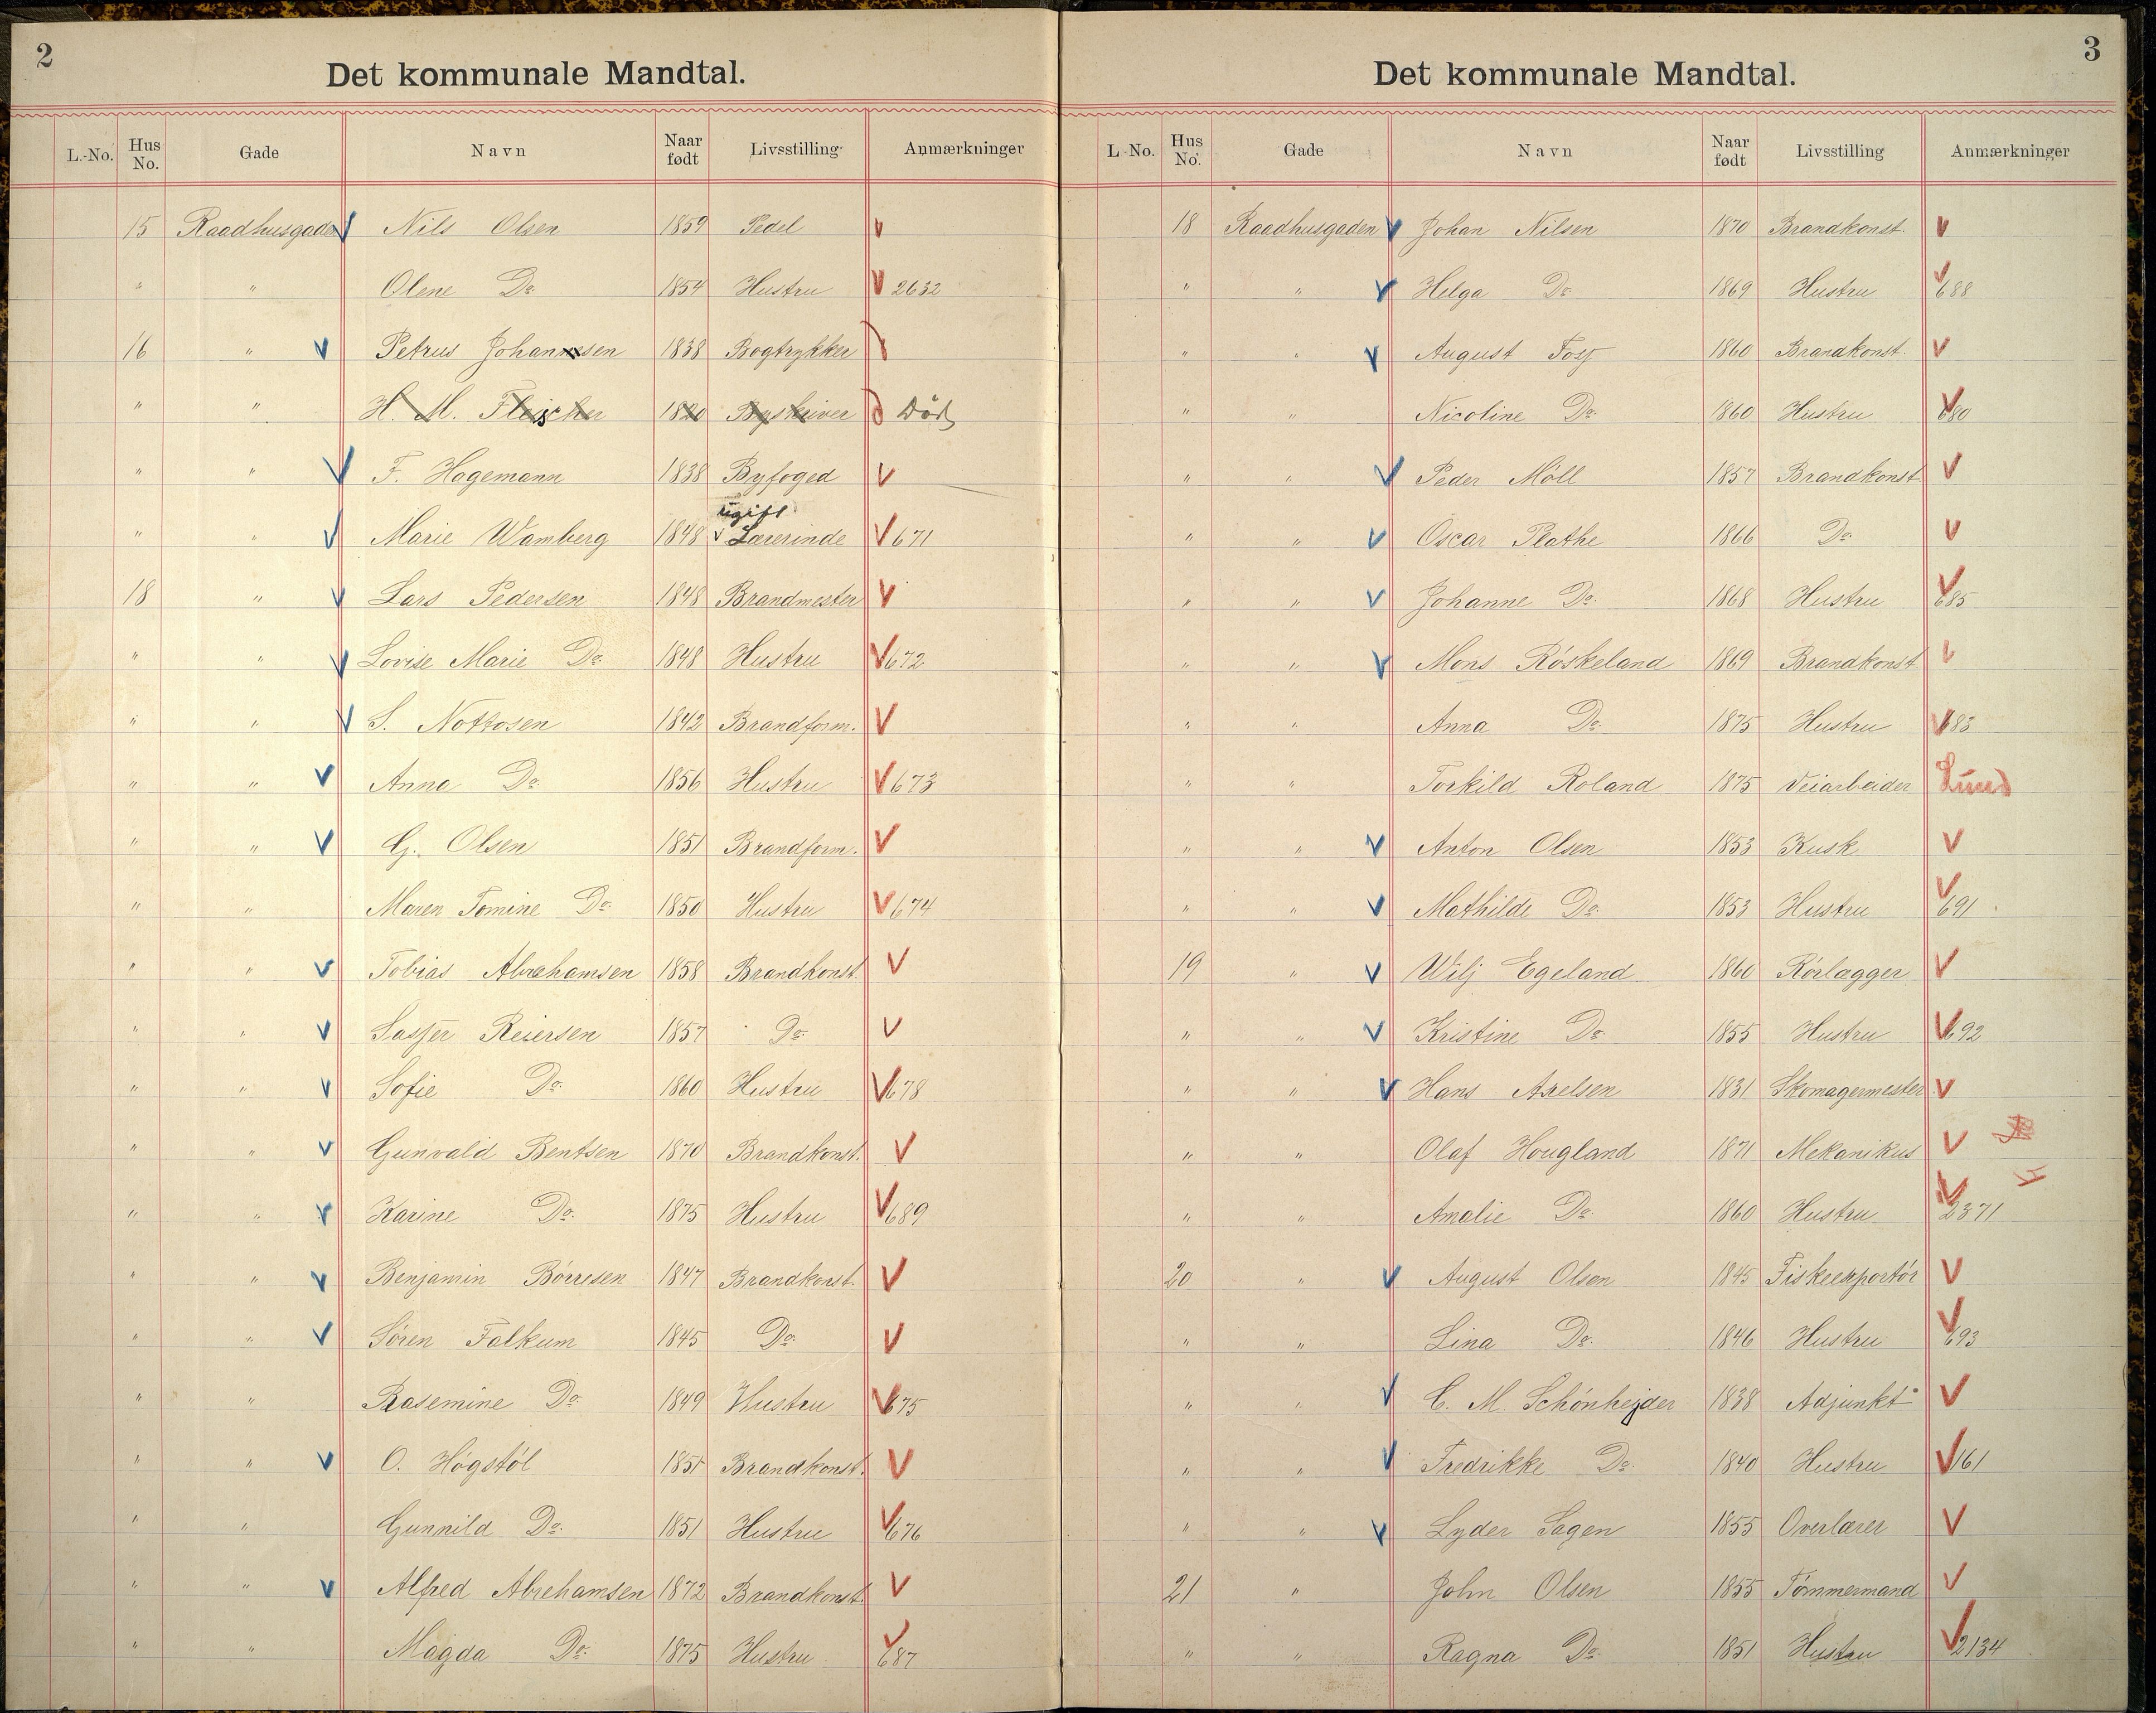 2
Det kommunale Mandtal.
L.-No. Hus No. Gade Navn Naar født Livsstilling Anmærkninger
15 Raadhusgaden Nils Olsen 1859 Pedel
" " Olene Do. 1854 Hustru 2632
16 " Petrus Johannesen 1838 Bogtrykker
" " H. M. Fleischer 1820 Byskriver Død
" " F. Hagemann 1838 Byfoged
ugift
" " Marie Wamberg 1848 Lærerinde 671
18 " Lars Pedersen 1848 Brandmester
" " Lovise Marie Do. 1848 Hustru 672
" " S. Nottosen 1842 Brandform.
" " Anna Do. 1856 Hustru 673
" " G. Olsen 1851 Brandform.
" " Maren Tomine Do. 1850 Hustru 674
" " Tobias Abrahamsen 1858 Brandkonst.
" " Reiersen 1857 Do.
" " Sofie Do. 1860 Hustru 678
" " Gunvald Bentsen 1870 Brandkonst.
" " Karine Do. 1875 Hustru 689
" " Benjamin Börresen 1847 Brandkonst.
" " Sören Falkum 1845 Do.
" " Rasemine Do. 1849 Hustru 675
" " O. Högstöl 1851 Brandkonst.
" " Gunnild Do. 1851 Hustru 676
" " Alfred Abrehamsen 1872 Brandkonst.
" " Magda Do. 1875 Hustru 687
3
Det kommunale Mandtal.
L-No. Hus No. Gade Navn Naar født Livsstilling Anmærkninger
18 Raadhusgaden Johan Nilsen 1870 Brandkonst.
" " Helga Do. 1869 Hustru 688
" " August Foss 1860 Brandkonst.
" " Nicoline Do. 1860 Hustru 680
" " Peder Möll 1857 Brandkonst
" " Oscar Plathe 1866 Do.
" " Johanne Do. 1868 Hustru 685
" " Mons Röskeland 1869 Brandkonst
" " Anna Do. 1875 Hustru 683
" " Torkild Roland 1875 Veiarbeider Lund
" " Anton Olsen 1853 Kusk
" " Mathilde Do. 1853 Hustru 691
19 " Wilj Egeland 1860 Rörlægger
" " Kristine Do. 1855 Hustru 692
" " Hans Axelsen 1831 Skomagermester
" " Olaf Hougland 1871 Mekanikus
" " Amalie Do. 1860 Hustru 2371
20 " August Olsen 1845 Fiskeexportör
" " Lina Do. 1846 Hustru 693
" " C. M. Schönhejder 1838 Adjunkt
" " Fredrikke Do. 1840 Hustru 161
" " Lyder Sagen 1855 Overlærer
21 " John Olsen 1855 Tömmermand
" " Ragna Do. 1851 Hustru 2134